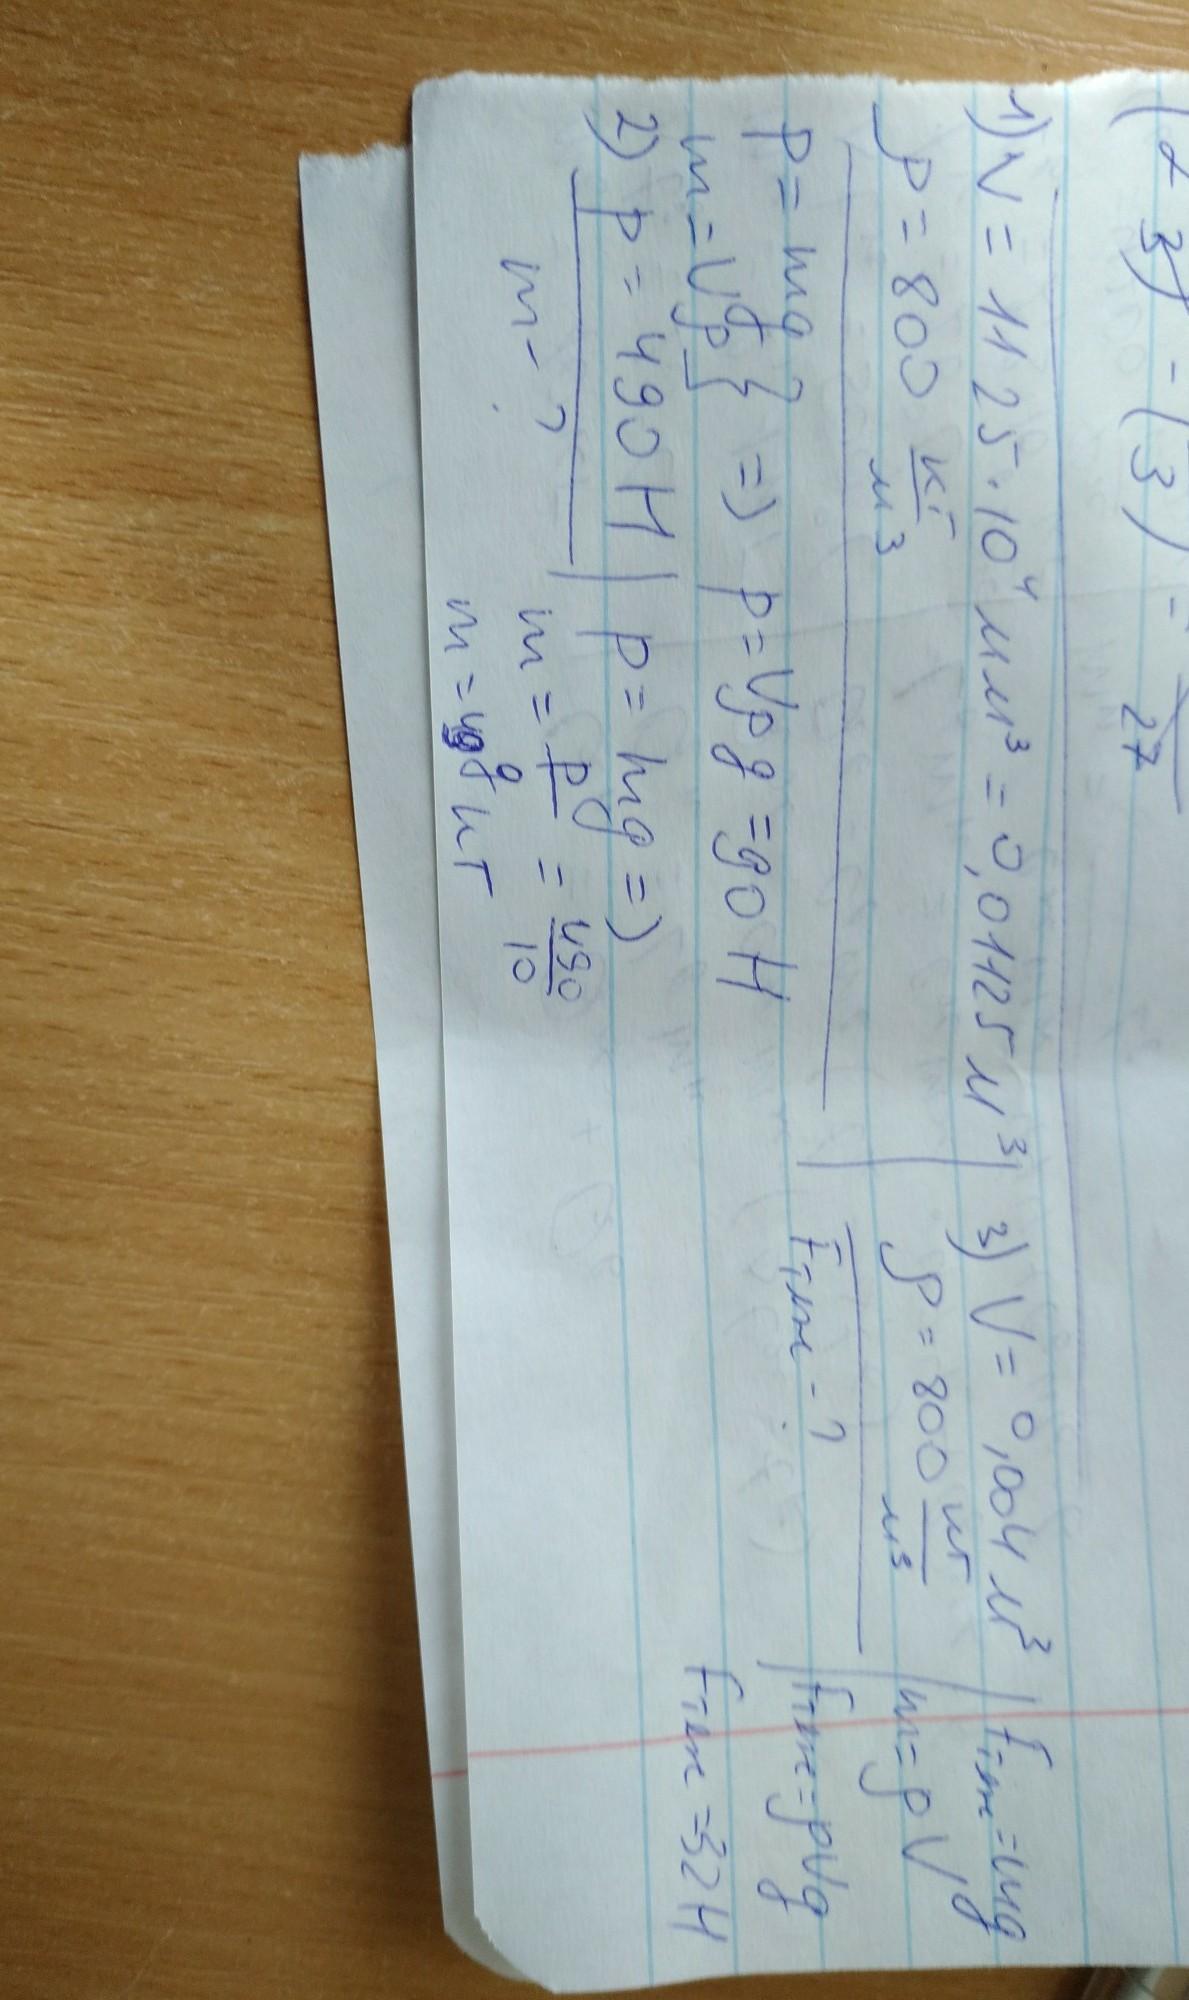 (2 3) - (3) -
27
1) V = 1125·10⁴ мм³ = 0,01125 м³
ρ = 800 кг/м³
P = mg
m = Vρ } => P = Vρg = 90 Н
2) P = 490 Н
m - ?
P = mg =>
m = P/g = 490/10
m = 49 кг
3) V = 0,004 м³
ρ = 800 кг/м³
Fтяж - ?
Fтяж = mg
m = ρV
Fтяж = ρVg
Fтяж = 32 Н